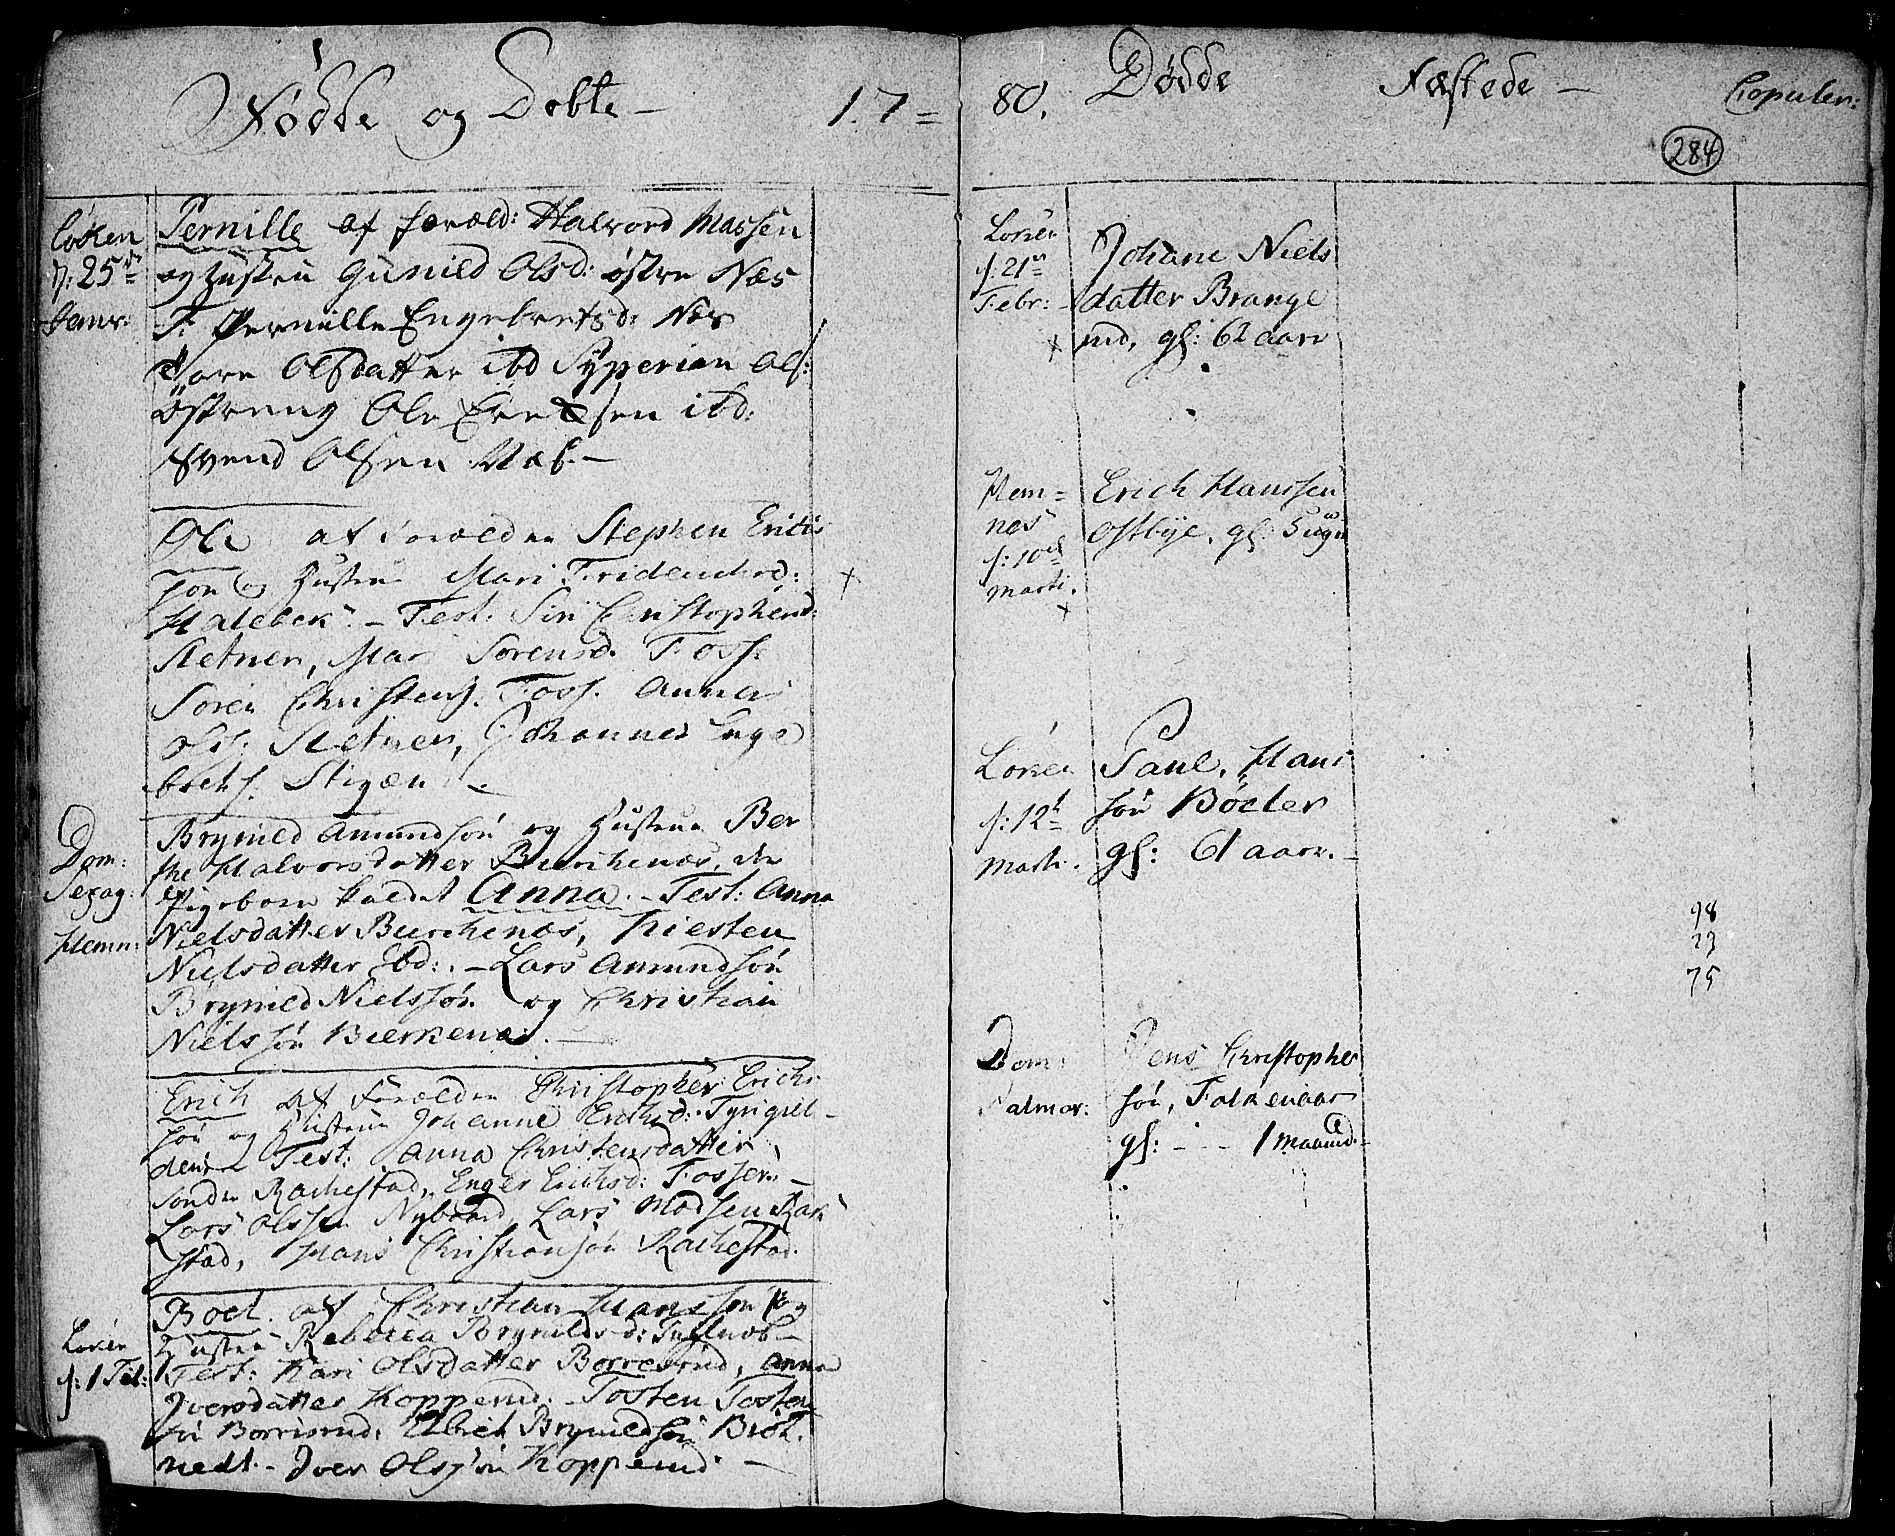 Fødde og Døbte – 1.7=
80. Dødde Fæstede – Copuler:
284
Løken
d: 25de
Janv:
Pernille af foræld: Halvord Massen
og Hustru Gunild Olsd: østre Næs
T: Pernille Engebretsd: Næs
Olsdatter ibd Syperian Ols:
østreng Ole Erecksen ibd:
Svend Olsen Næs. –
Ole af Forældre Stephen Erics
søn og Hustru Mari Friderichsd:
Halebek. – Test: Siri Christophersd:
Sletner, Mari Sorensd. Foss.
Soren Christens. Foss. Anna
Ols: Sletner, Johannes Inge
brets. Stigen –
Dom:
Sexag:
Hemn:
Brynild Amundsøn og Hustrue Ber
the Halvorsdatter Burchenæs, den
Pigebarn kaldet Anna. – Test: Anna
Nielsdatter Burchenæs, Kiersten
Nielsdatter Ibd: – Lars Amundsøn
Brynild Nielssøn og Christian
Nielssøn Bierkenæs. –
Erich af Forældre Christopher Erichs
søn og Hustrue Johanne Erichsd: Tyrigsel
den Test: Anna Christensdatter
søndre Rachestad, Enger Erichsd: Fosser. –
Lars Olssen Nybaard, Lars Madsen Rak
stad, Hans Christiansøn Rachestad.
Løken
d: 1 Feb:
Boel. af Christian Hanssøn og
Hustru Rebecca Brynilds d:
Test: Kari Olsdatter Borresrud, Anna
Iversdatter Kopperud. Tosten Tosten
søn Borrisrud, Brynildsøn
nedt. – Iver Olsøn Kopperud. –
Løken
d: 21de
Febr:
Johane Niels
datter Brange
rud, gl: 62 aar
Hem=
nes
d: 10de
Marti.
Erich Hanssen
Ostbye. gl: 5 uger
Løken
d: 12te
Marti.
Paul Hans
søn Böeler
gl: 61 aar. –
98
23
75
Dom:
Palmar:
Jens Christopher
søn, Falkenaar
gl: – – 1 maaned. –